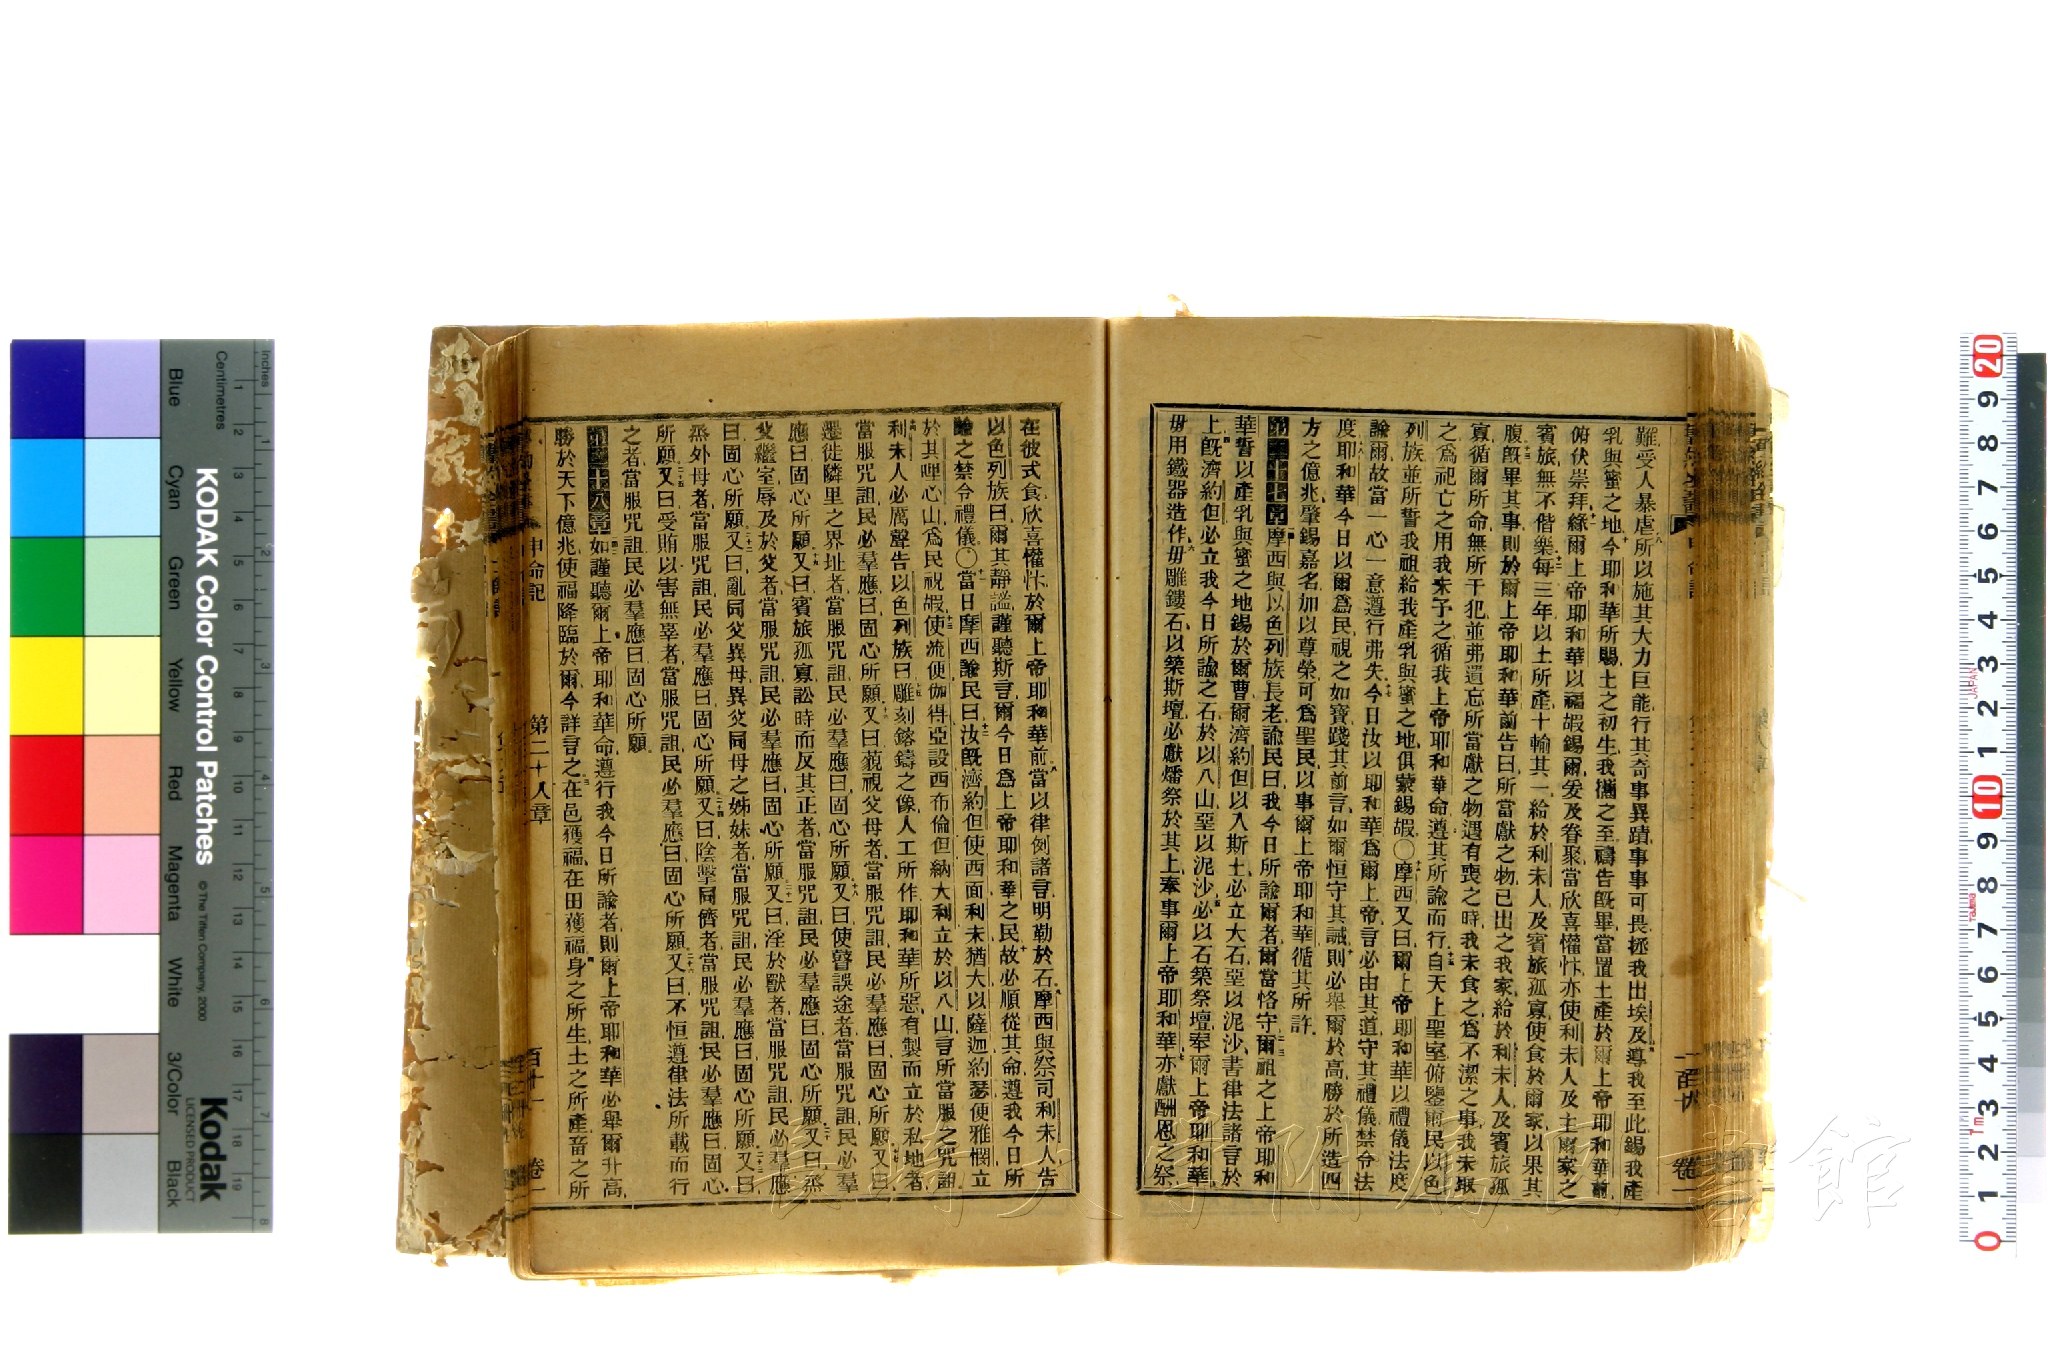 難受人暴虐所以施其大力巨能行其奇事異蹟事事可畏拯我出埃及導我至此錫我產
乳與蜜之地今耶和華所賜土之初生我攜之至禱告旣畢當置土產於爾上帝耶和華前
俯伏崇拜緣爾上帝耶和華以福嘏錫爾爰及眷聚當欣喜懽忭亦使利未人及主爾家之
賓旅無不偕樂每三年以土所產十輸其一給於利未人及賓旅孤寡使食於爾家以果其
腹旣畢其事則於爾上帝耶和華前告曰所當獻之物已出之我家給於利未人及賓旅孤
寡循爾所命無所干犯並弗遺忘所當獻之物遇有喪之時我未食之爲不潔之事我未取
之爲祀亡之用我未予之循我上帝耶和華命遵其所諭而行自天上聖室俯鑒爾民以色
列族並所誓我祖給我產乳與蜜之地俱蒙錫嘏〇摩西又曰爾上帝耶和華以禮儀法度
諭爾故當一心一意遵行弗失今日汝以耶和華爲爾上帝言必由其道守其禮儀禁令法
度耶和華今日以爾爲民視之如寶踐其前言如爾恒守其誡則必舉爾於高勝於所造四
方之億兆肇錫嘉名加以尊榮可爲聖民以事爾上帝耶和華循其所許
第二十七章摩西與以色列族長老諭民曰我今日所諭爾者爾當恪守爾祖之上帝耶和
華誓以產乳與蜜之地錫於爾曹爾濟約但以入斯土必立大石堊以泥沙書律法諸言於
上旣濟約但必立我今日所諭之石於以八山堊以泥沙必以石築祭壇奉爾上帝耶和華
毋用鐵器造作毋雕鏤石以築斯壇必獻燔祭於其上奉事爾上帝耶和華亦獻酬恩之祭
一百十 卷一
在彼式食欣喜懽忭於爾上帝耶和華前當以律例諸言明勒於石摩西與祭司利未人告
以色列族曰爾其靜謐謹聽斯言爾今日爲上帝耶和華之民故必順從其命遵我今日所
諭之禁令禮儀〇當日摩西諭民曰汝旣濟約但使西面利未猶大以薩迦約瑟便雅憫立
於其哩心山爲民祝嘏使流便伽得亞設西布倫但納大利立於以八山言所當服之咒詛
利未人必厲聲告以色列族曰雕刻鎔鑄之像人工所作耶和華所惡有製而立於私地者
當服咒詛民必羣應曰固心所願又曰藐視父母者當服咒詛民必羣應曰固心所願又曰
遷徙隣里之界址者當服咒詛民必羣應曰固心所願又曰使瞽誤途者當服咒詛民必羣
應曰固心所願又曰賓旅孤寡訟時而反其正者當服咒詛民必羣應曰固心所願又曰烝
父繼室辱及於父者當服咒詛民必羣應曰固心所願又曰淫於獸者當服咒詛民必羣應
曰固心所願又曰亂同父異母異父同母之姊妹者當服咒詛民必羣應曰固心所願又曰
烝外母者當服咒詛民必羣應曰固心所願又曰陰擊同儕者當服咒詛民必羣應曰固心
所願又曰受賄以害無辜者當服咒詛民必羣應曰固心所願又曰不恒遵律法所載而行
之者當服咒詛民必羣應曰固心所願
第二十八章如謹聽爾上帝耶和華命遵行我今日所諭者則爾上帝耶和華必舉爾升高
勝於天下億兆使福降臨於爾今詳言之在邑獲福在田獲福身之所生土之所產畜之所
申命記 第二十八章 百十一 卷一
KODAK Color Control Patches © The Tiffen Company, 2000
Kodak LICENSED PRODUCT
Inches
Centimetres
Blue Cyan Green Yellow Red Magenta White 3/Color Black
JAPAN
長崎大学附属図書館